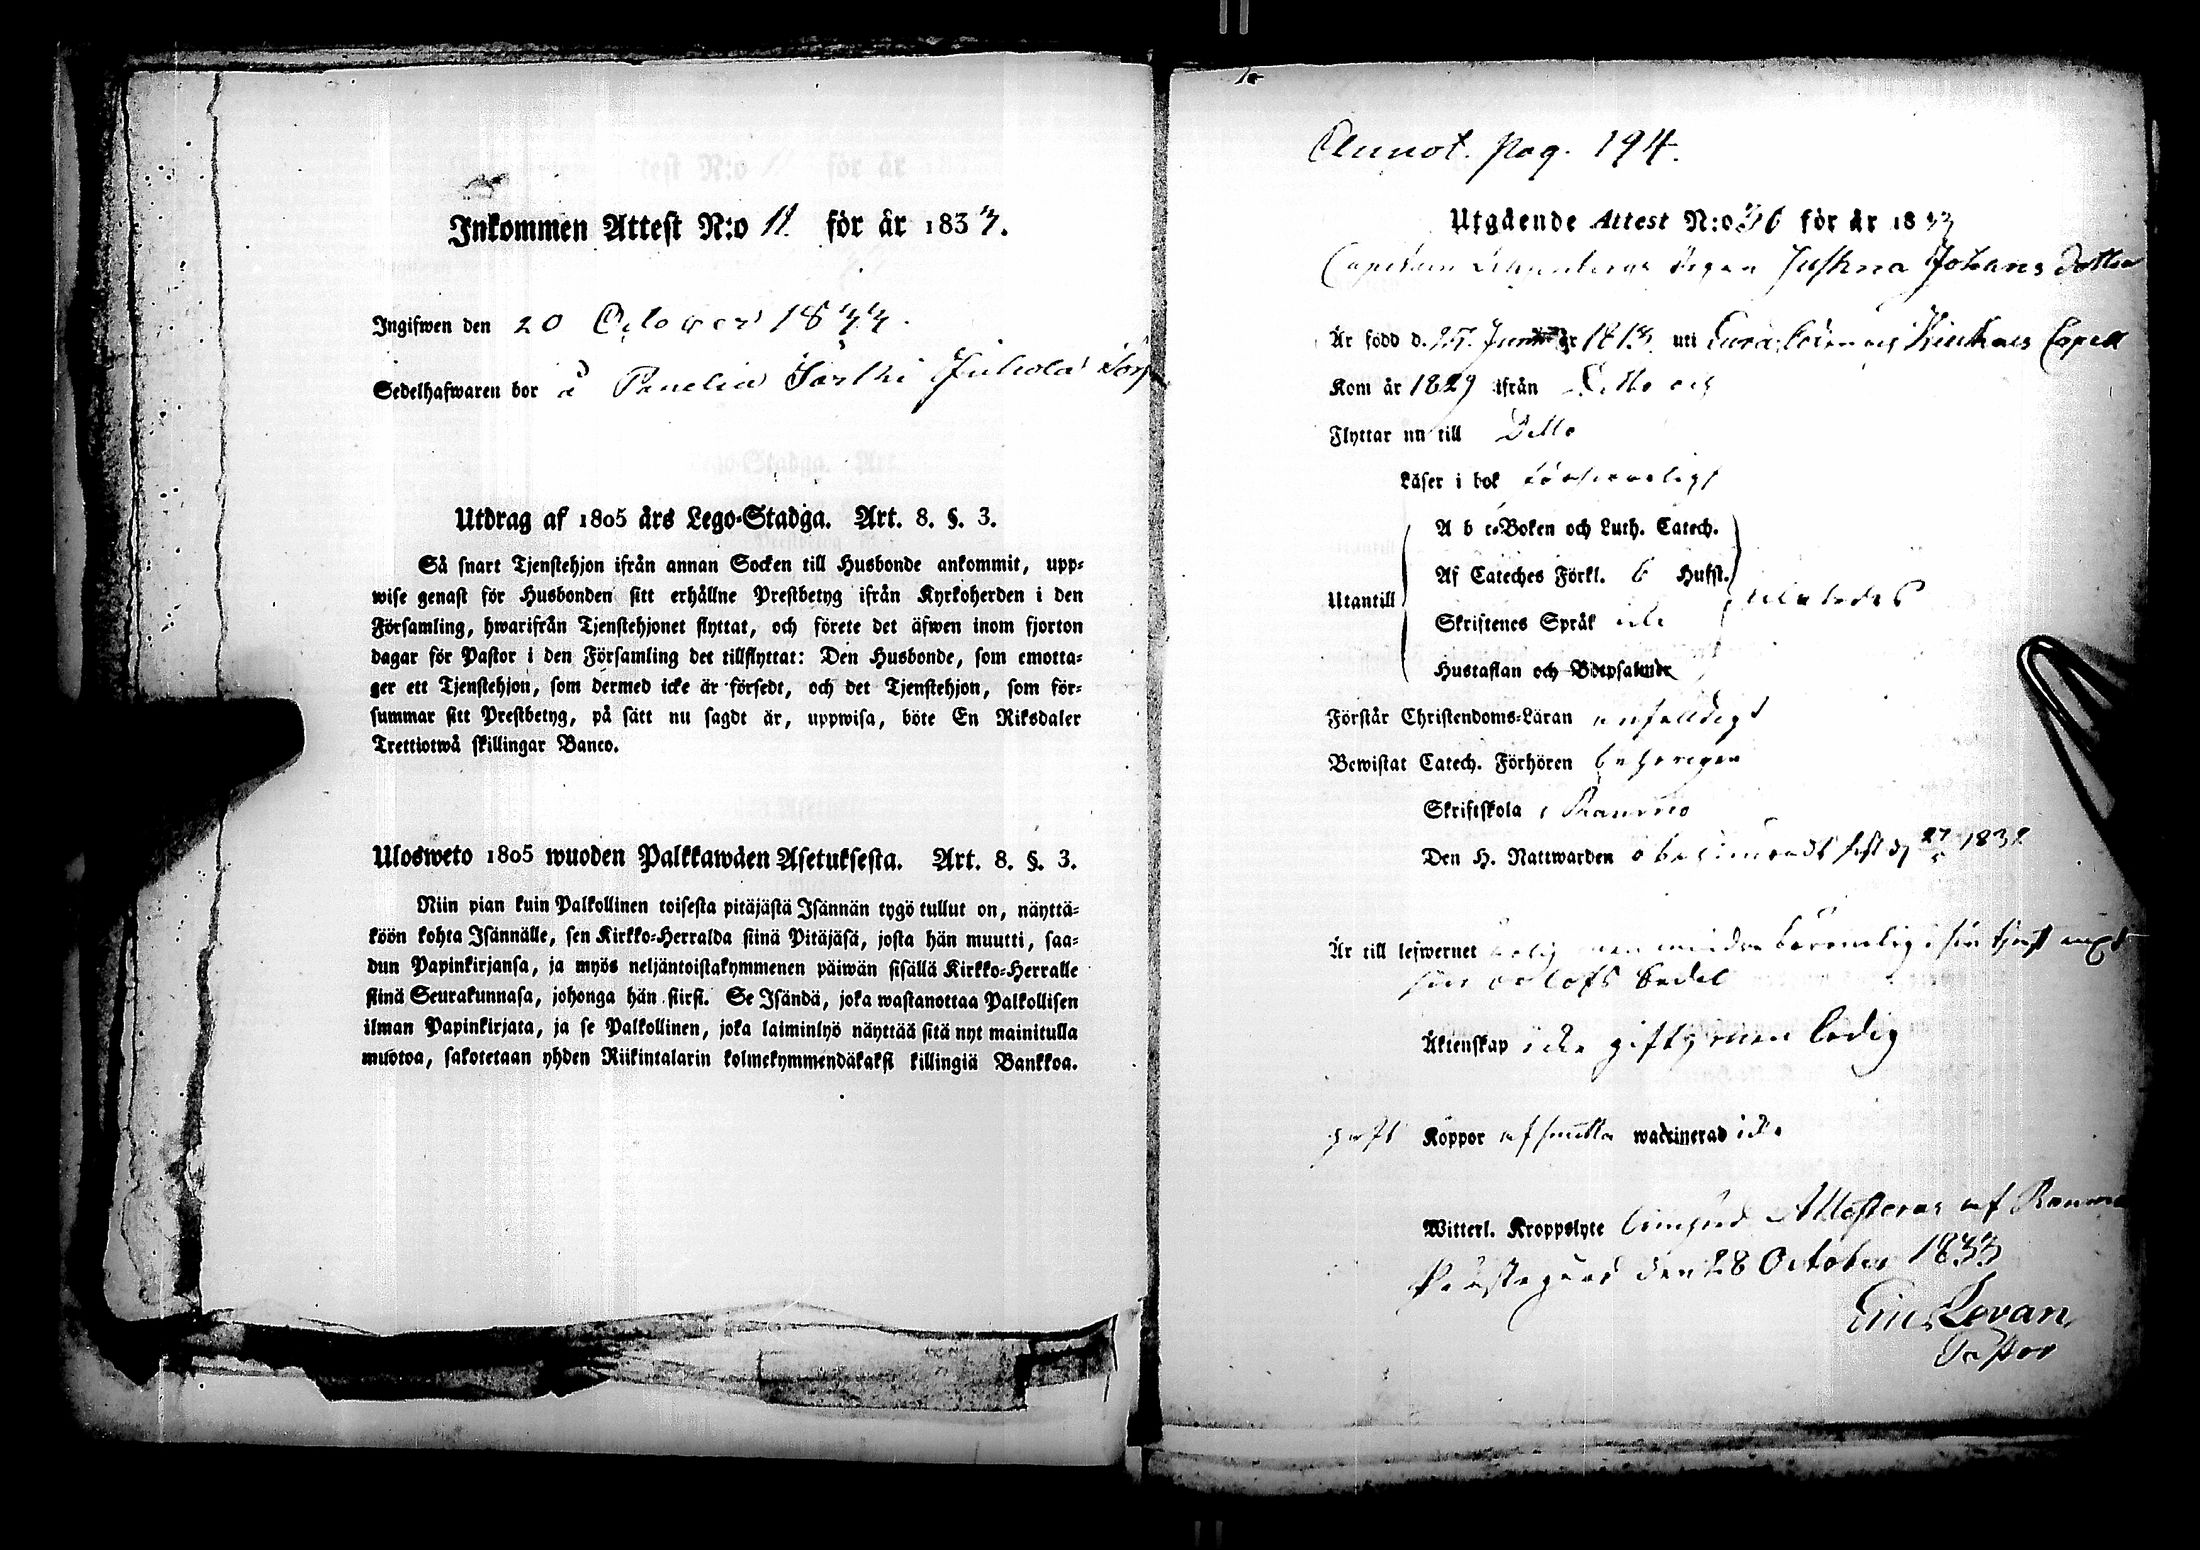 Inkommen Attest N:o 11 för år 1833.
Ingifwen den 20 October 1833.
Sedelhafwaren bor å Panelia
Utdrag af 1805 års Lego-Stadga. Art. 8. §. 3.
Så snart Tjenstehjon ifrån annan Socken till Husbonde ankommit, upp-
wise genast för Husbonden sitt erhållne Prestbetyg ifrån Kyrkoherden i den
Församling, hwarifrån Tjenstehjonet flyttat, och förete det äfwen inom fjorton
dagar för Pastor i den Församling det tillflyttat: Den Husbonde, som emotta-
ger ett Tjenstehjon, som dermed icke är försedt, och det Tjenstehjon, som för-
summar sitt Prestbetyg, på sätt nu sagdt är, uppwisa, böte En Riksdaler
Trettiotwå skillingar Banco.
Ulosweto 1805 wuoden Palkkawäen Asetuksesta. Art. 8. §. 3.
Niin pian kuin Palkollinen toisesta pitäjästä Isännän tygö tullut on, näyttä-
köön kohta Isännälle, sen Kirkko-Herralda siinä Pitäjäsä, josta hän muutti, saa-
dun Papinkirjansa, ja myös neljäntoistakymmenen päiwän sisällä Kirkko-Herralle
siinä Seurakunnasa, johonga hän siirsi. Se Isändä, joka wastanottaa Palkollisen
ilman Papinkirjata, ja se Palkollinen, joka laiminlyö näyttää sitä nyt mainitulla
muotoa, sakotetaan yhden Riikintalarin kolmekymmendäkaksi killingiä Bankkoa.
Annot. pag. 194.
Utgående Attest N:o 36 för år 1833
pigan Justina Johans dotter
Är född d. 25. Juni år 1813 uti Eura Capell
Kom år 1829 ifrån Ditto och
Flyttar nu till Ditto
Läser i bok försvarligt
A b c-Boken och Luth. Catech.
Af Cateches Förkl. 6 Hufst.
Utantill
Skriftenes Språk icke
Hustaflan och Botpsalmer
Förstår Christendoms-Läran enfaldigt
Bewistat Catech. Förhören behörigen
Skriftskola i Raumo
Den H. Nattwarden obehindradt sist d. 27 1832
Är till lefwernet ärlig men mindre i sin tjenst
sin orlofs sedel
Äktenskap icke gift, men ledig
haft Koppor wackinerad icke
Witterl. Kroppslyte Attesteras af Raumo
Prästegård den 28 October 1833
Levan
Pastor